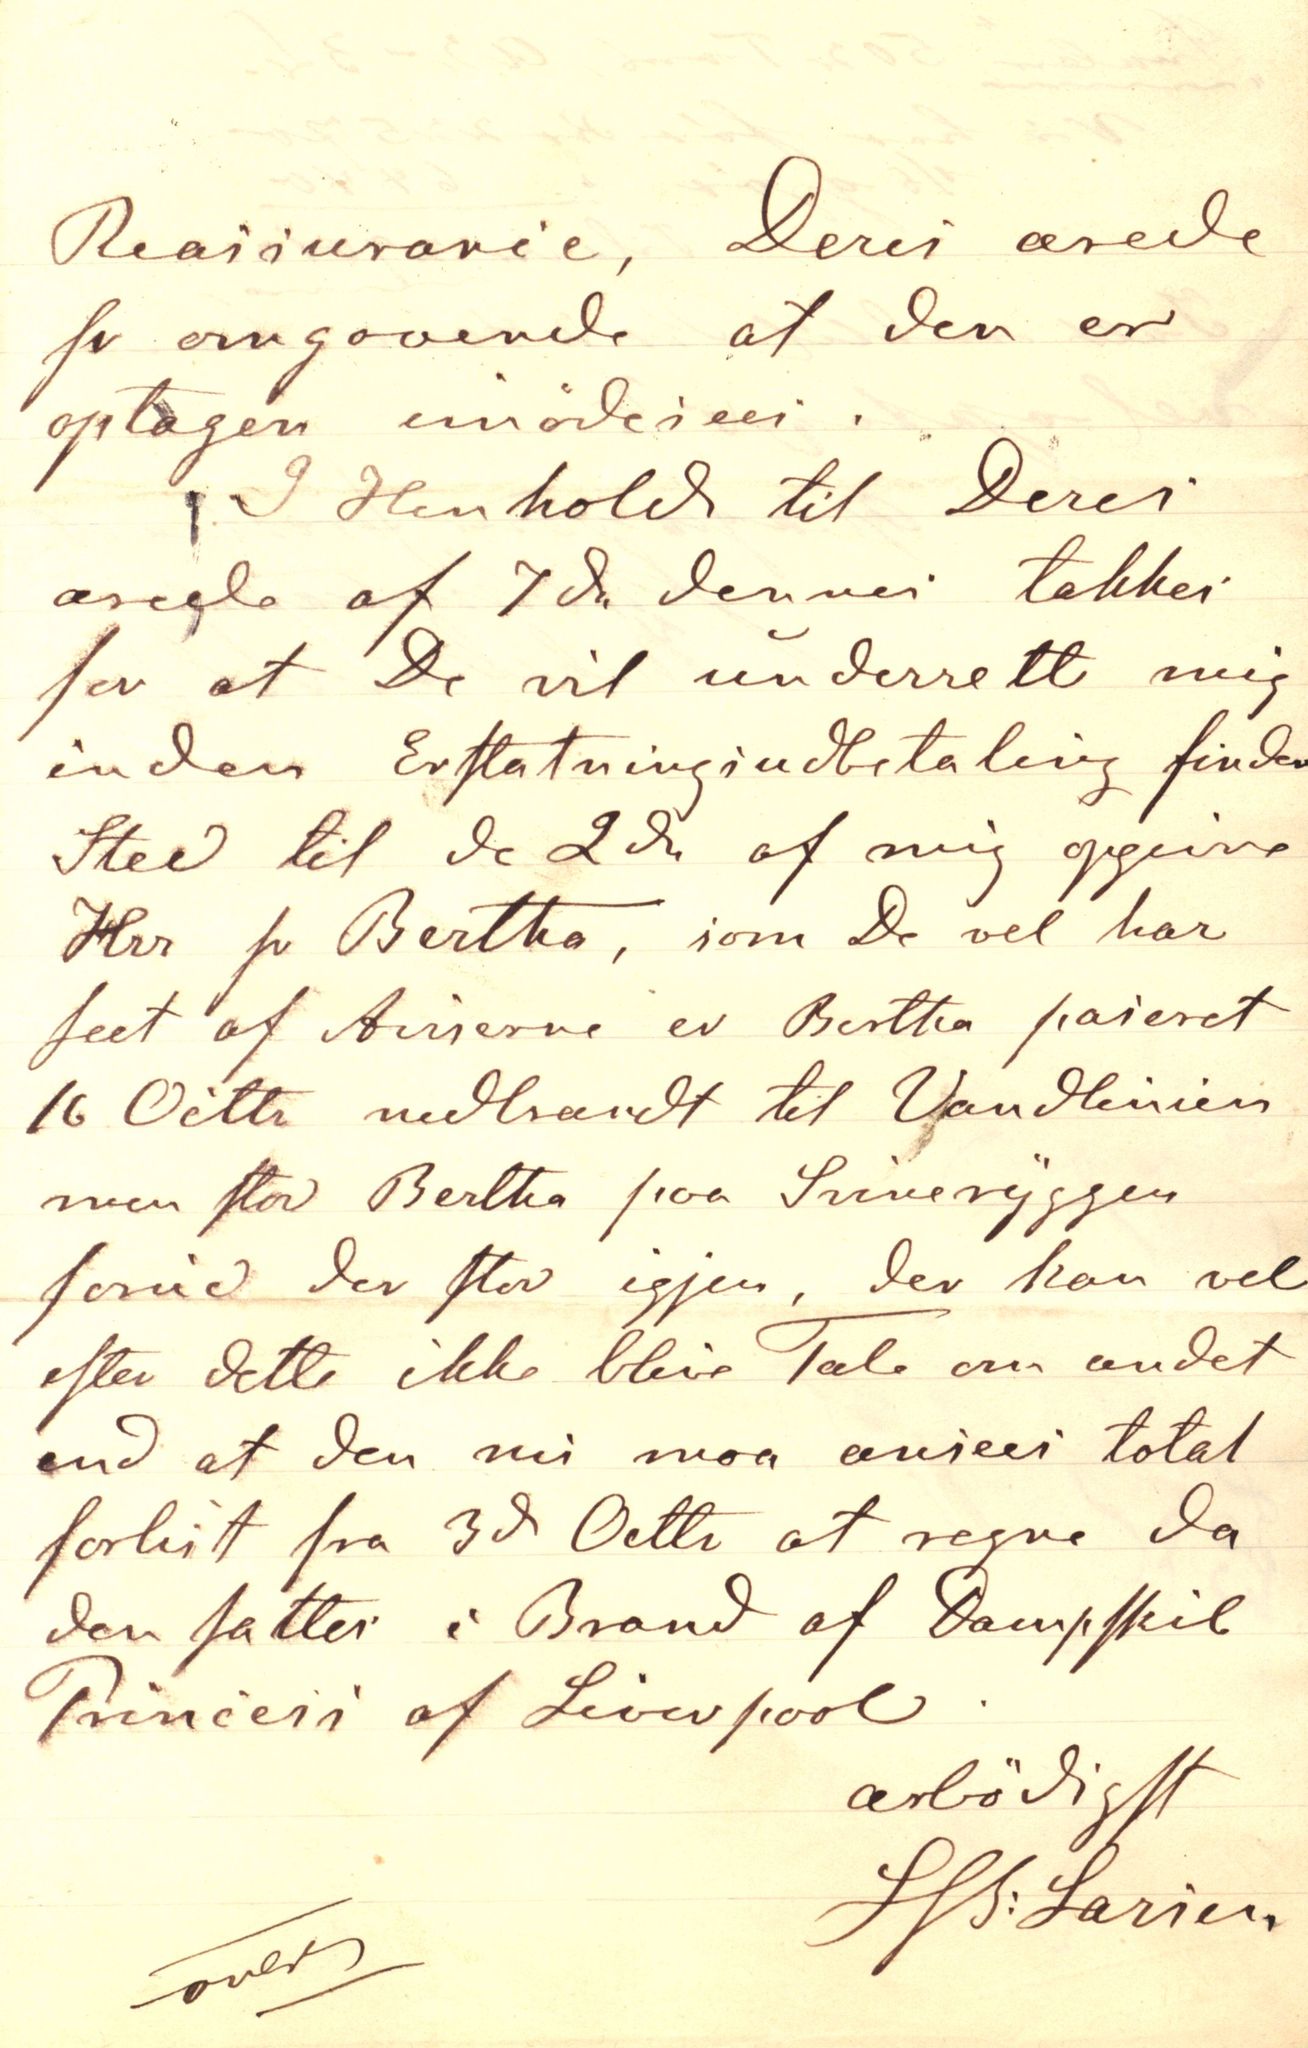 Reassurance, Deres ærede
pr omgaaende at den er
optagen imödesees.
I Henhold til Deres
ærede af 7 ds dennes takkes
for at De vil underrett mig
inden Erstatningsudbetaling finder
Sted til de 2 ds af mig opgivne
Hrr pr Bertha, som De vel har
seet af Aviserne er Bertha passeret
16 Octbr nedbrandt til Vandlinien
men stod Bertha paa Svineryggen
forud der stod igjen, der kan vel
efter dette ikke blive Tale om andet
end at den nu maa ansees total
forlist fra 3 d Octbr at regne da
den sattes i Brand af Dampskib
Princess af Liverpool.
ærbödigst
Larsen
over